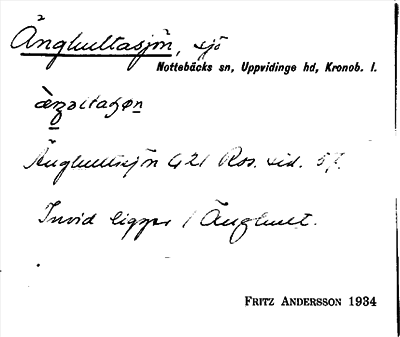 Änghultasjön, sjö
Nottebäcks sn, Uppvidinge hd, Kronob. l.
Änghultsjön G21 Ros. sid. 57.
Invid ligger / Änghult.
FRITZ ANDERSSON 1934